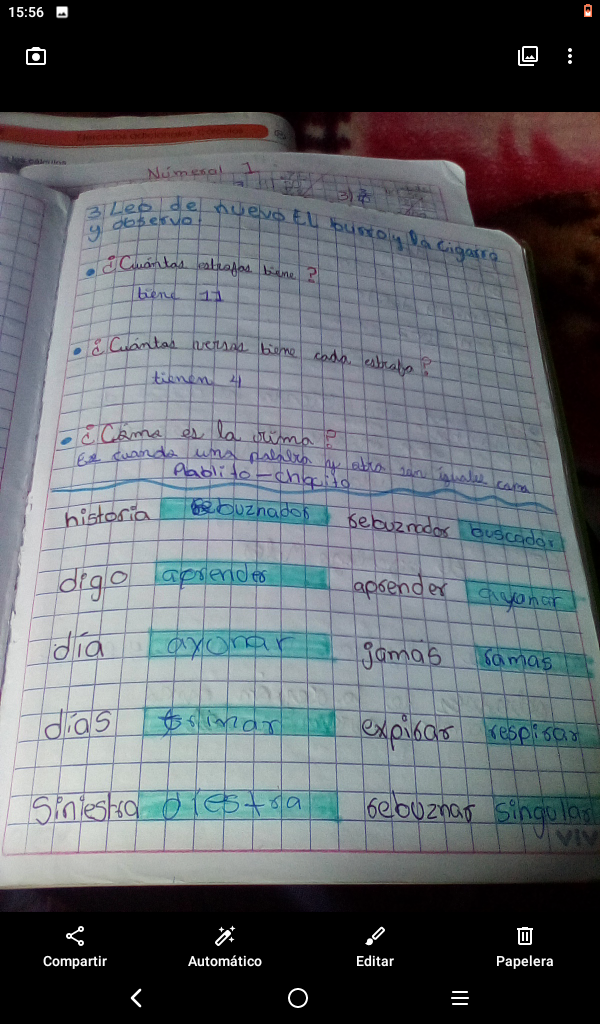 15:56
Ejercicios adicionales
Numeral 1
3)
3 Leo de nuevo El burro y la cigarra
y observo
• ¿Cuántas estrofas tiene?
tiene 11
• ¿Cuántos versos tiene cada estrofa?
tienen 4
• ¿Cómo es la rima?
Es cuando una palabra y otra son iguales como
Pablito - chiquito
historia rebuznador rebuznador buscador
digo aprender aprender ayonar
día ayonar jamás ramas
días trimar expirar respirar
Siniestra diestra rebuznar singular
VIV
Compartir Automático Editar Papelera